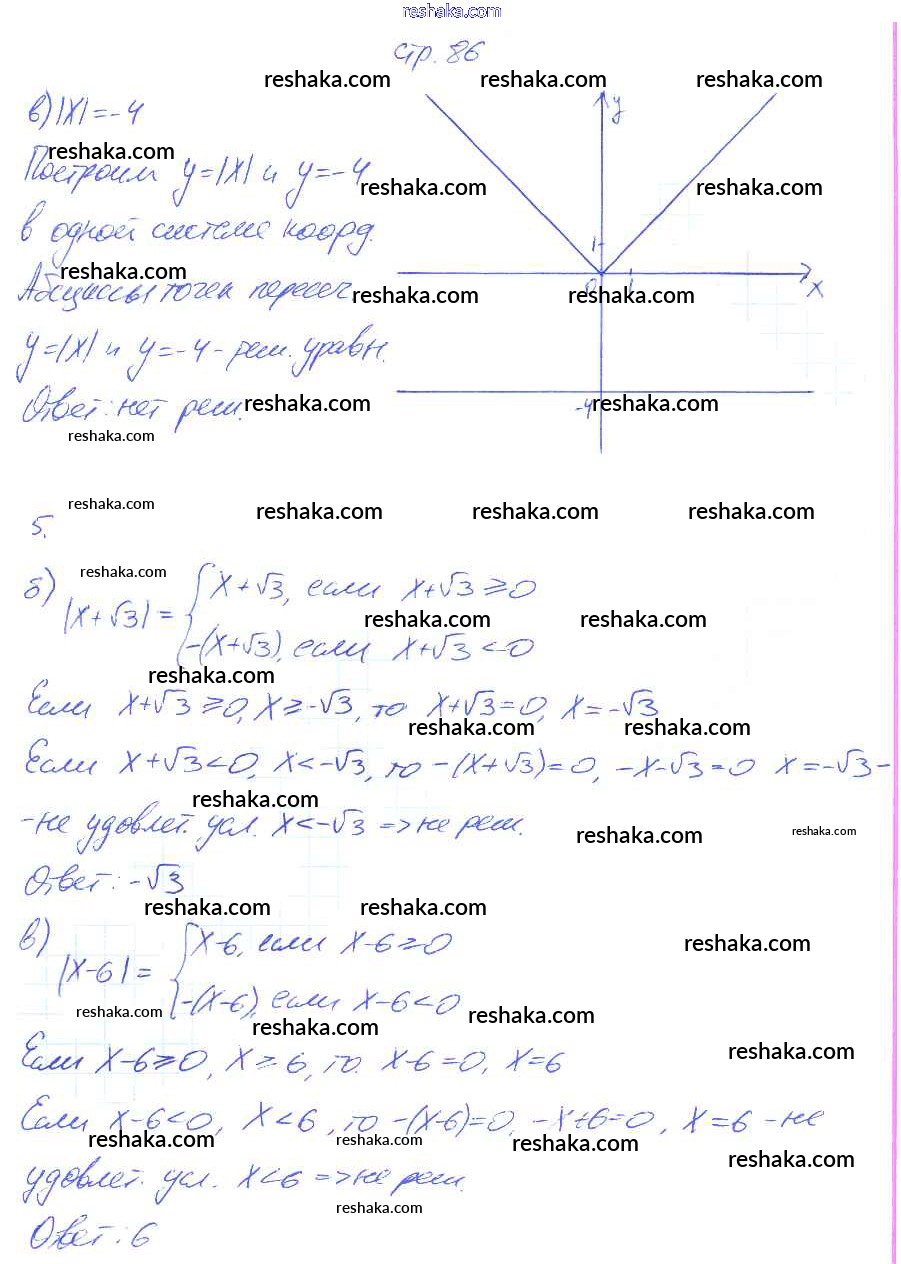 reshaka.com
стр. 86
reshaka.com reshaka.com reshaka.com
в) |x| = -4
reshaka.com
Построим y=|x| и y=-4
reshaka.com reshaka.com
в одной системе коорд.
reshaka.com
Абсциссы точек пересеч.
reshaka.com reshaka.com
y=|x| и y=-4 - реш. уравн.
Ответ: нет реш.
reshaka.com reshaka.com
reshaka.com
y
1
0 1 x
-4
reshaka.com
reshaka.com reshaka.com reshaka.com
5.
reshaka.com
б) |x+√3| = { x+√3, если x+√3 ≥ 0
reshaka.com reshaka.com
-(x+√3), если x+√3 < 0
reshaka.com
Если x+√3 ≥ 0, x ≥ -√3, то x+√3 = 0, x = -√3
reshaka.com reshaka.com
Если x+√3 < 0, x < -√3, то -(x+√3) = 0, -x-√3 = 0 x = -√3 -
reshaka.com
- не удовлет. усл. x < -√3 => не реш.
reshaka.com reshaka.com
Ответ: -√3
reshaka.com reshaka.com
в) |x-6| = { x-6, если x-6 ≥ 0
reshaka.com
-(x-6), если x-6 < 0
reshaka.com reshaka.com
reshaka.com
Если x-6 ≥ 0, x ≥ 6, то x-6 = 0, x = 6
reshaka.com
Если x-6 < 0, x < 6, то -(x-6) = 0, -x+6 = 0, x = 6 - не
reshaka.com reshaka.com reshaka.com
reshaka.com
удовлет. усл. x < 6 => не реш.
reshaka.com
Ответ: 6